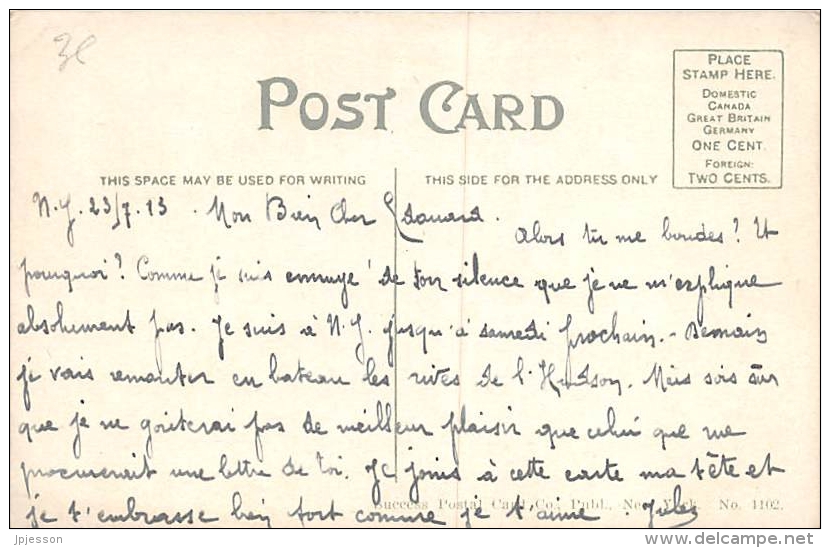 3€
PLACE
STAMP HERE.
DOMESTIC
CANADA
GREAT BRITAIN
GERMANY
ONE CENT.
FOREIGN:
TWO CENTS.
POST CARD
THIS SPACE MAY BE USED FOR WRITING
THIS SIDE FOR THE ADDRESS ONLY
N.Y. 23/7.13. Mon Bien Cher Edouard.
Alors tu me boudes? Et
pourquoi? Comme je suis ennuyé de ton silence que je ne m'explique
absolument pas. Je suis à N.Y. jusqu'à samedi prochain. - Demain
je vais remonter en bateau les rives de l'Hudson. Mais sois sûr
que je ne goûterai pas de meilleur plaisir que celui que me
procurerait une lettre de toi. Je joins à cette carte ma tête et
je t'embrasse bien fort comme je t'aime. Jules
Success Postal Card Co., Publ., New York. No. 1102.
Jpjesson
www.delcampe.net